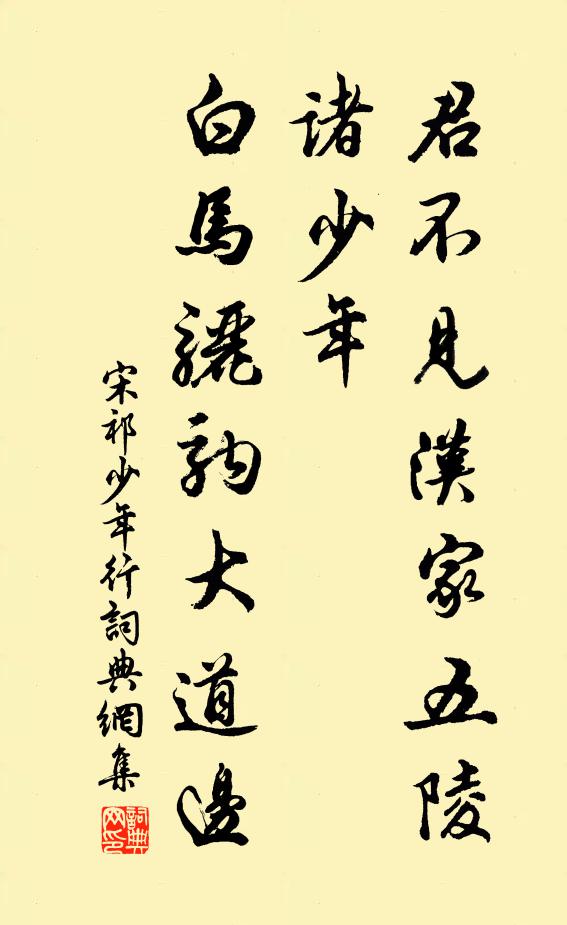 君不見漢家五陵
諸少年
白馬驪駒大道邊
宋祁少年行詞典網集
詞典网印